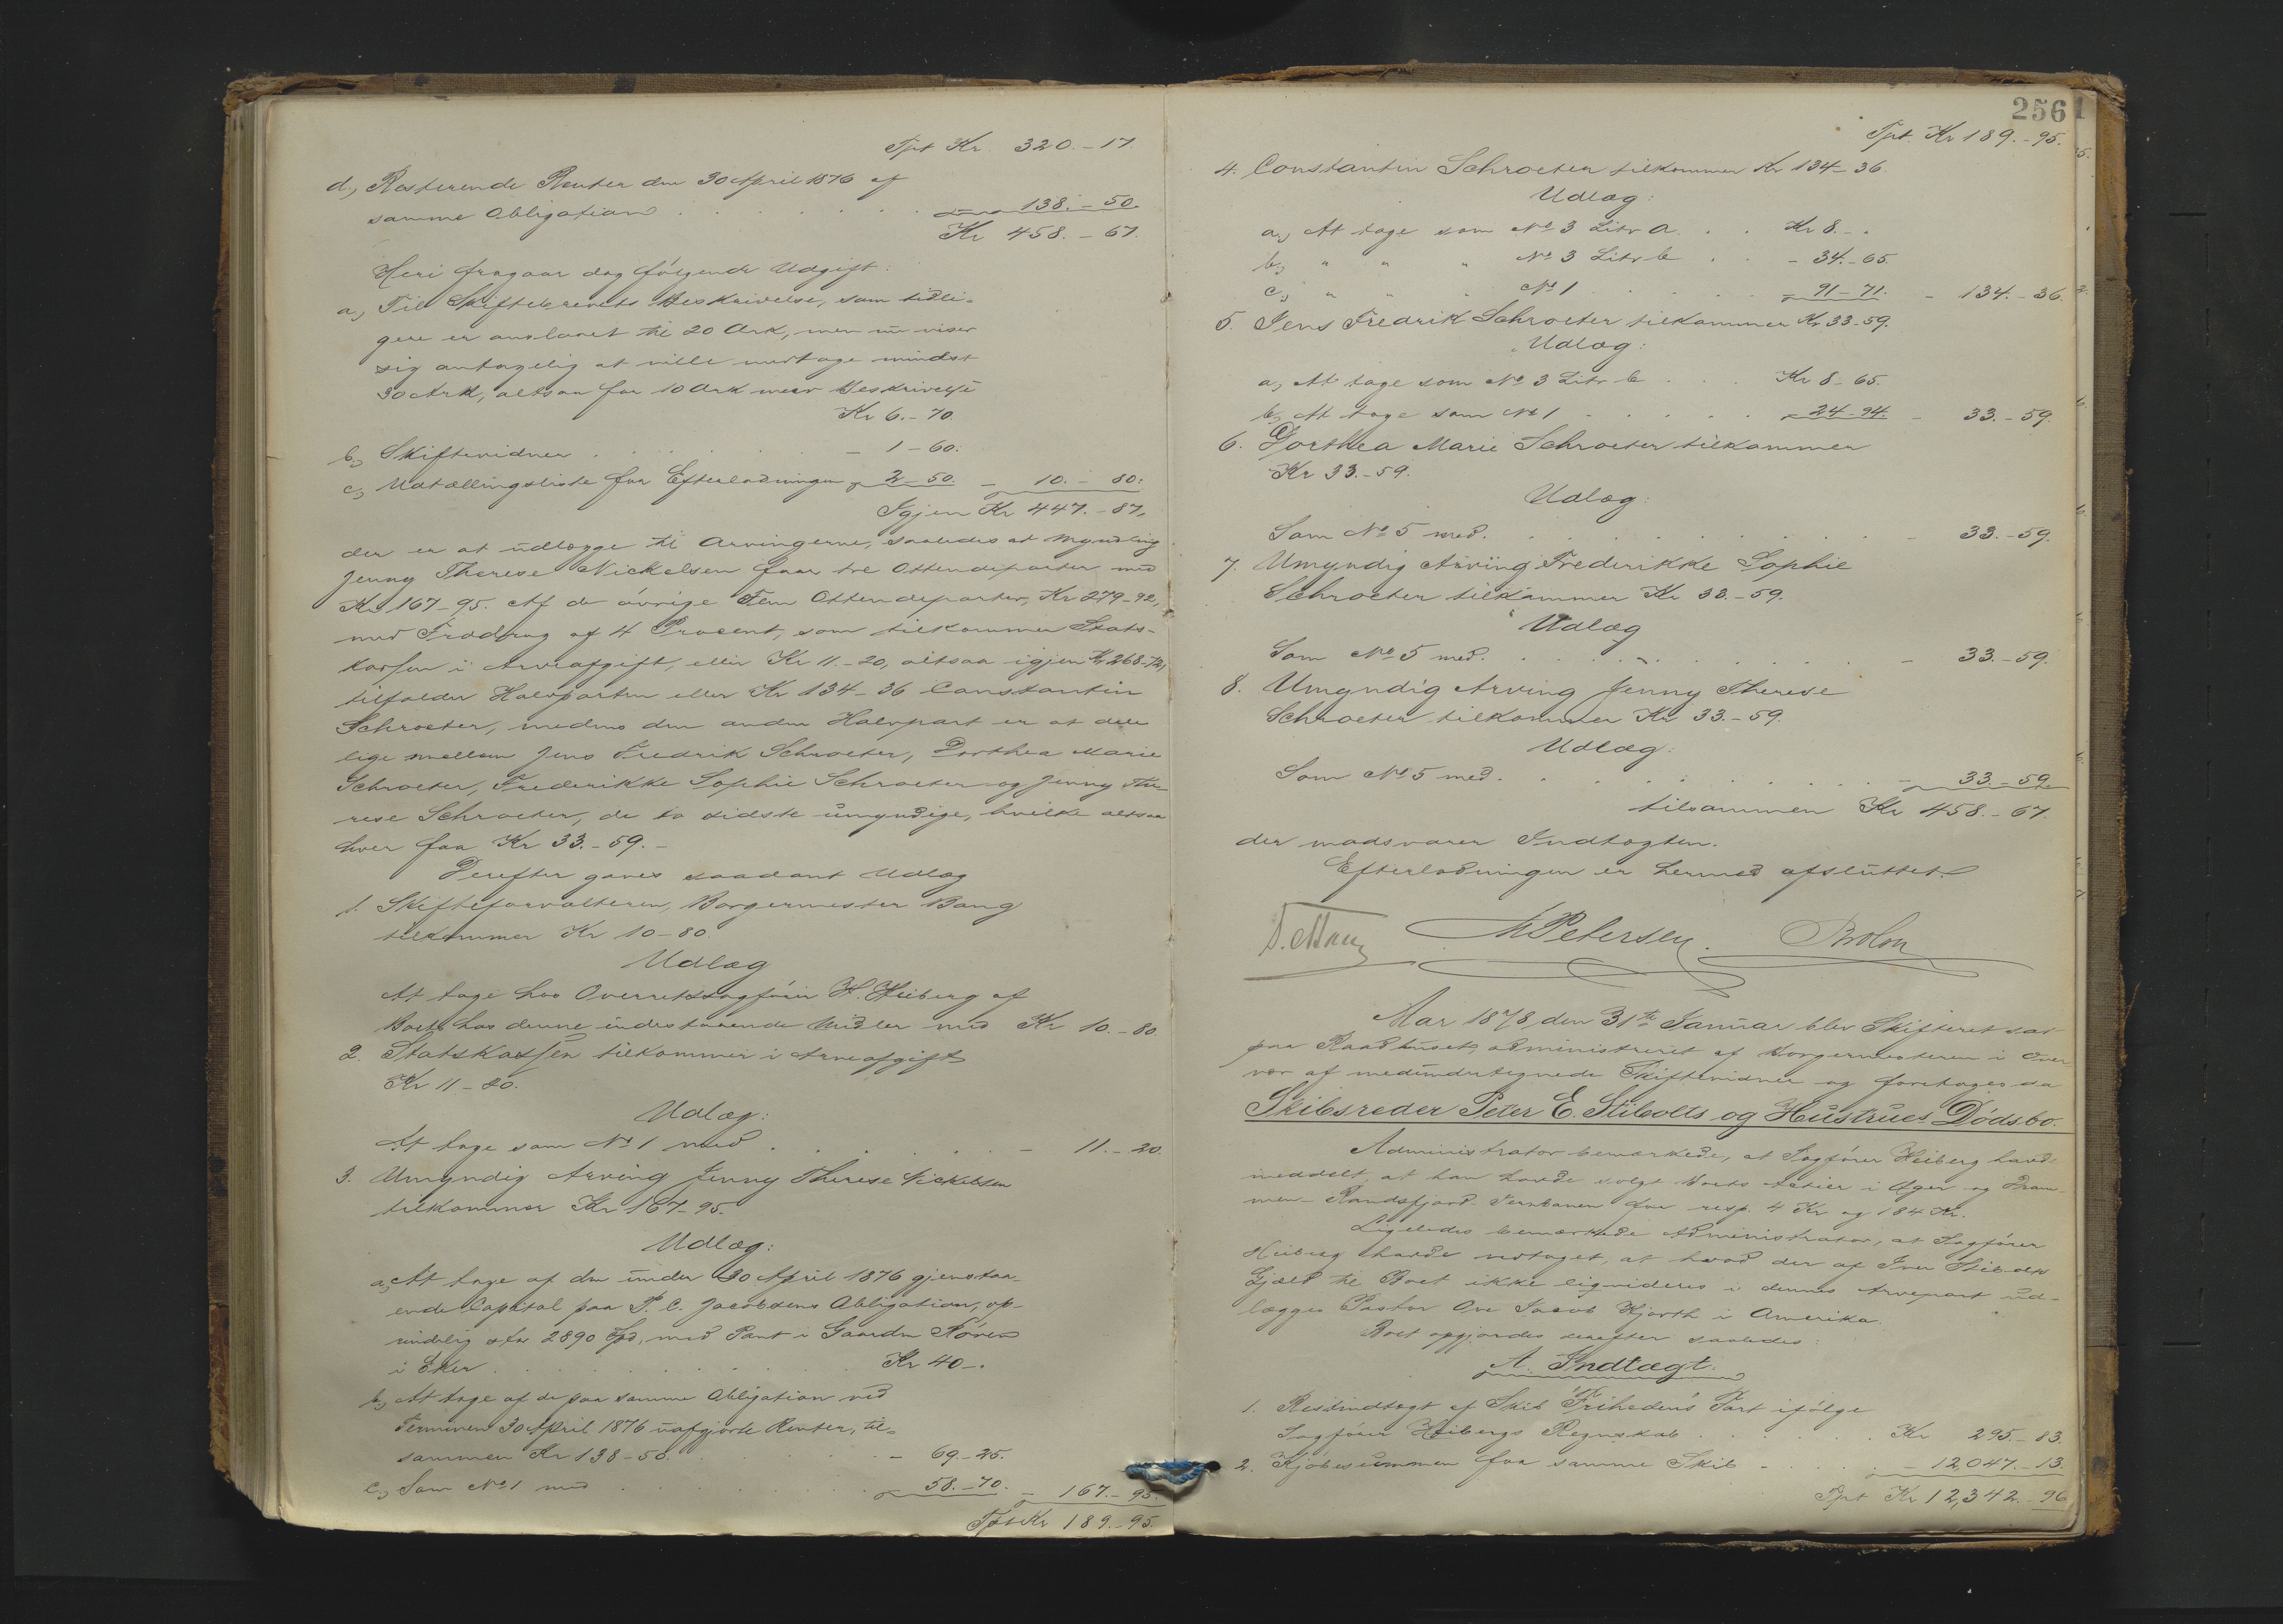 Tpt Kr. 320.-17.
d., Resterende Renter den 30 April 1876 af
samme Obligation . . . . . . . - 138.-50.
Kr 458.-67.
Heri fragaar dog følgende Udgift:
a, Til Skiftebrevets Beskrivelse, som tidli-
gere er anslaaet til 20 Ark, men nu viser
sig antagelig at ville medtage mindst
30 Ark, altsaa for 10 Ark mere Beskrivelse
Kr 6.-70
b, Skiftevidner . . . . . . - 1-60:
c, Udtællingsliste for Efterlodningen - 2-50. - 10.-80:
Igjen Kr 447.-87,
der er at udlægge til Arvingerne, saaledes at Myndling
Jenny Therese Nickelsen faar tre Ottendeparter med
Kr 167-95. Af de øvrige Fem Ottendeparter, Kr 279-92,
med Fradrag af 4 Procent, som tilkommer Stats-
kassen i Arveafgift, eller Kr 11.-20, altsaa igjen Kr 268-72,
tilfalder Halvparten eller Kr 134-36 Constantin
Schroeter, medens den anden Halvpart er at dele
lige mellem Jens Fredrik Schroeter, Dorthea Marie
Schroeter, Frederikke Sophie Schroeter og Jenny The-
rese Schroeter, de to sidste umyndige, hvilke altsaa
hver faa Kr 33.-59.-
Derefter gaves saadant Udlæg
1. Skifteforvalteren, Borgermester Bang
tilkommer Kr 10-80.
Udlæg
At tage hos Overretssagfører H. Heiberg af
Boets hos denne indestaaende Midler med Kr 10.-80.
2. Statskassen tilkommer i Arveafgift
Kr 11-20.
Udlæg:
At tage som No 1 med . . . . . . - 11.-20.
3. Umyndig Arving Jenny Therese Nickelsen
tilkommer Kr 167-95.
Udlæg:
a, At tage af den under 30 April 1876 gjenstaa-
ende Capital paa P. C. Jacobsens Obligation, op-
rindelig stor 2890 Spd, med Pant i Gaarden
i Eker . . . . . . . . Kr 40-.
b, At tage af de paa samme Obligation ved
Terminen 30 April 1876 uafgjorte Renter, til-
sammen Kr 138-50. . . . . . - 69.-25.
c, Som No 1 med . . . . . . - 58.-70. - 167.-95.
Tpt Kr 189.-95.
256
Tpt. Kr 189.-95.
4. Constantin Schroeter tilkommer Kr 134-36.
Udlæg:
a., At tage som No 3 Litr a. . . Kr 8.-.
b, " " " No 3 Litr b . . - 34.-65.
c, " " " No 1 . . . . - 91-71. - 134.-36.
5. Jens Fredrik Schroeter tilkommer Kr 33-59.
Udlæg:
a, At tage som No 3 Litr b . . . Kr 8-65.
b, At tage som No 1 . . . . . - 24-94. - 33.-59.
6. Dorthea Marie Schroeter tilkommer
Kr 33.-59.
Udlæg:
Som No 5 med. . . . . . . . . - 33.-59.
7. Umyndig Arving Frederikke Sophie
Schroeter tilkommer Kr 33.-59.
Udlæg
Som No 5 med. . . . . . . . . - 33.-59.
8. Umyndig Arving Jenny Therese
Schroeter tilkommer Kr 33.-59.
Udlæg:
Som No 5 med. . . . . . . . . - 33.-59.
tilsammen Kr 458.-67.
der modsvarer Indtægten.
Efterlodningen er hermed afsluttet.
Petersen.
Aar 1878, den 31te Januar blev Skifteret sat
paa Raadhuset, administreret af Borgermesteren i Over-
vær af medundertegnede Skiftevidner og foretoges da
Skibsreder Peter E. Stibolts og Hustrues Dødsbo.
Administrator bemærkede, at Sagfører Heiberg havde
meddelt, at han havde solgt Boets Actier i Ager og Dram-
men-Randsfjord-Jernbanen for resp. 4 Kr og 184 Kr.
Ligeledes bemærkede Administrator, at Sagfører
Heiberg havde vedtaget, at hvad der af Iver Stibolts
Gjæld til Boet ikke ligvideres i dennes Arvepart ud-
lægges Pastor Ove Jacob Hjorth i Amerika.
Boet opgjordes derefter saaledes:
A. Indtægt.
1. Restindtægt af Skib "Friheden's Part ifølge
Sagfører Heibergs Regnskab . . . . . . Kr 295.-83.
2. Kjøbesummen for samme Skib - . . . . - 12,047.-13.
Tpt Kr 12,342.-96